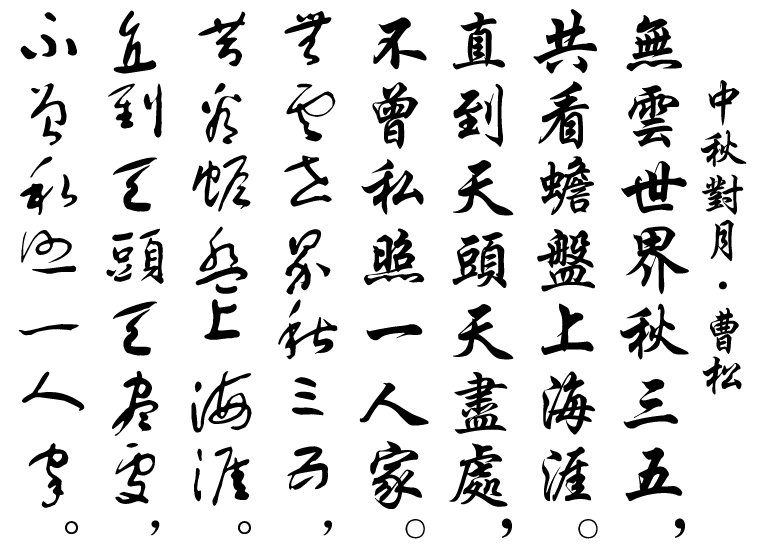 中秋對月·曹松
無雲世界秋三五，
共看蟾盤上海涯。
直到天頭天盡處，
不曾私照一人家。
無雲世界秋三五，
共看蟾盤上海涯。
直到天頭天盡處，
不曾私照一人家。